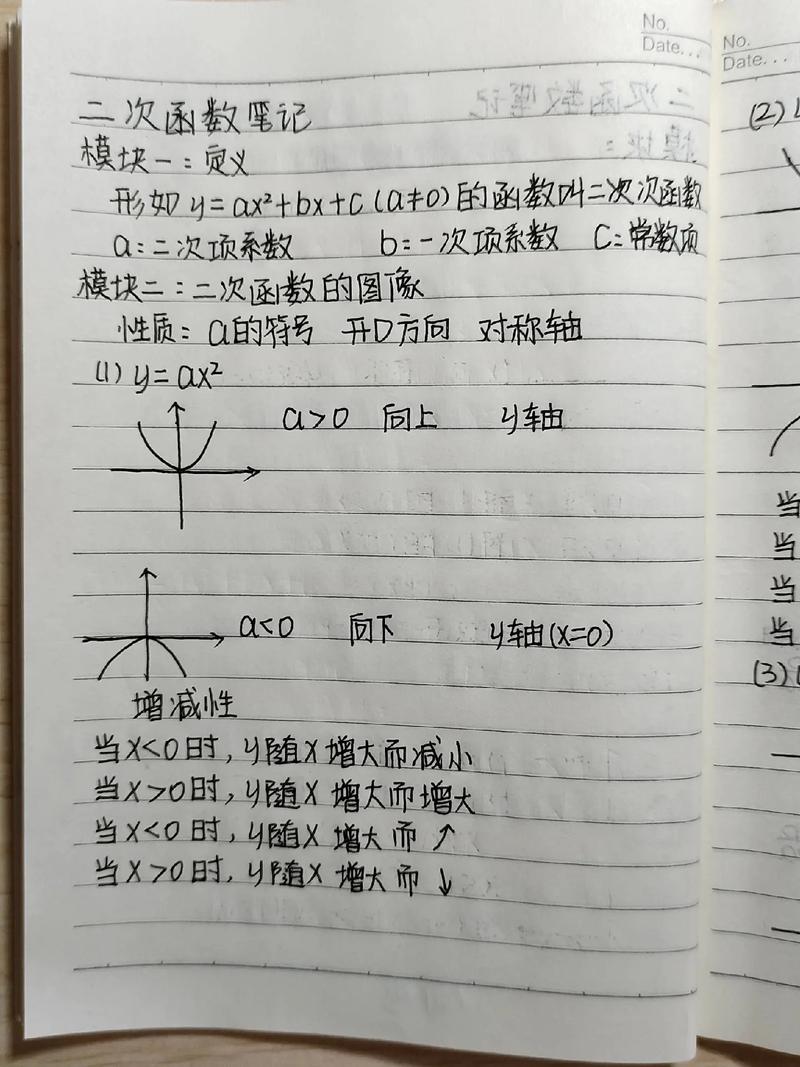 No.
Date...
二次函数笔记
模块一：定义
形如 y=ax²+bx+c (a≠0)的函数叫二次次函数
a=二次项系数 b=一次项系数 C=常数项
模块二：二次函数的图像
性质：a的符号 开口方向 对称轴
(1) y=ax²
a>0 向上 y轴
a<0 向下 y轴(x=0)
增减性
当x<0时,y随x增大而减小
当x>0时,y随x增大而增大
当x<0时,y随x增大而↑
当x>0时,y随x增大而↓
No.
Date...
(2)
当
当
当
当
(3)